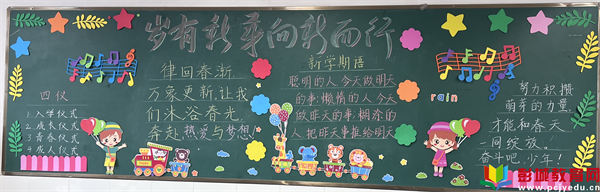 岁有新章向新而行
四仪
1.入学仪式
2.成长仪式
3.青春仪式
4.成人仪式
律回春渐,
万象更新,让我
们沐浴春光,
奔赴热爱与梦想
新学期语
聪明的人今天做明天
的事;懒惰的人今天
做昨天的事;糊涂的
人把昨天事推给明天
rain
努力积攒
萌芽的力量
才能和春天
一同绽放。
奋斗吧,少年!
彭州教育网
www.pcjyedu.cn